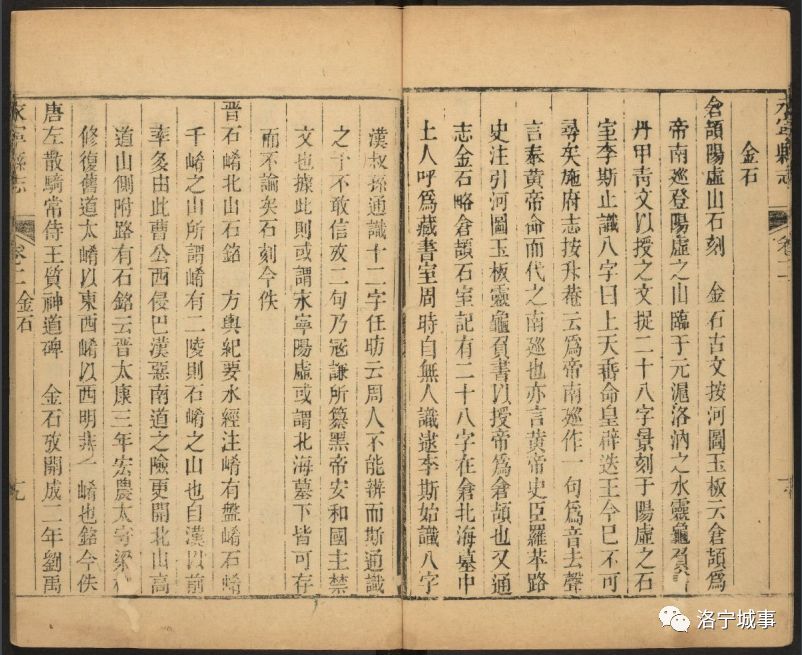 永寧縣志
卷二
金石
倉頡陽虛山石刻 金石古文按河圖玉板云倉頡爲
帝南廵登陽虛之山臨于元滬洛汭之水靈龜負
丹甲靑文以授之文捉二十八字景刻于陽虛之石
室李斯止識八字曰上天垂命皇辟迭王今已不可
尋矣施府志按升菴云爲帝南廵作一句爲音去聲
言奉黃帝命而代之南廵也亦言黃帝史臣羅苹路
史注引河圖玉板靈龜負書以授帝爲倉頡也又通
志金石略倉頡石室記有二十八字在倉北海墓中
土人呼爲藏書室周時自無人識逮李斯始識八字
漢叔孫通識十二字任昉云周人不能辨而斯通識
之予不敢信攷二句乃冦謙所纂黑帝安和國主禁
文也據此則或謂永寧陽虛或謂北海墓下皆可存
而不論矣石刻今佚
晉石崤北山石銘 方輿紀要水經注崤有盤崤石崤
千崤之山所謂崤有二陵則石崤之山也自漢以前
率多由此曹公西侵巴漢惡南道之險更開北山高
道山側附路有石銘云晉太康三年宏農太守梁
修復舊道太崤以東西崤以西明非一崤也銘今佚
唐左散騎常侍王質神道碑 金石攷開成二年劉禹
永寧縣志
卷二 金石
十九
洛宁城事